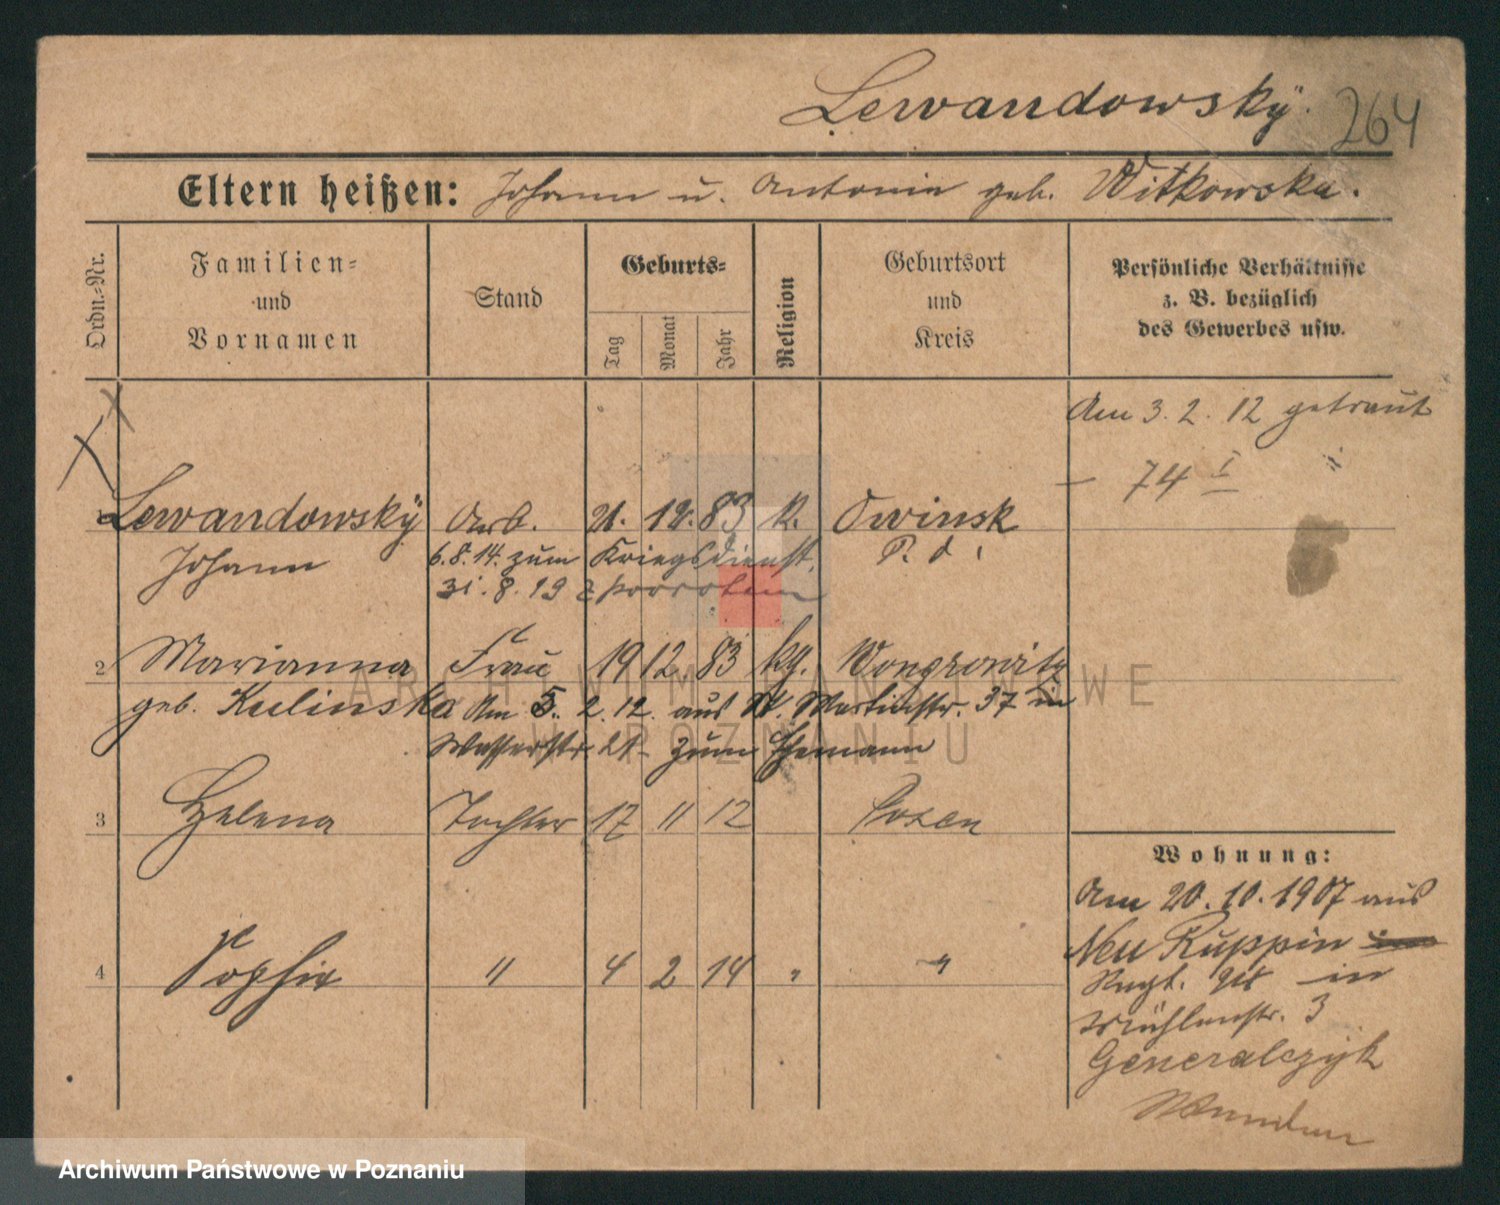 Lewandowskÿ. 264
Eltern heißen: Johann u. Antonie geb. Witkowska.
Ordn.-Nr.
Familien-
und
Vornamen
Stand
Geburts-
Tag
Monat
Jahr
Religion
Geburtsort
und
Kreis
Persönliche Verhältnisse
z. B. bezüglich
des Gewerbes usw.
Am 3. 2. 12 getraut
- 74 I
Lewandowskÿ Arb. 21. 12. 83 K. Owinsk
Johann 6.8.14. zum Kriegsdienst. P. O.
31. 8. 19
2 Marianna Frau 19 12 83 kg. Wongrowitz
geb. Kulinska Am 5. 2. 12. aus St. Martinstr. 37 in
Wasserstr. 21 zum Ehemann
3 Helena Tochter 17 11 12 Posen
4 Sophie " 4 2 14 " "
Wohnung:
Am 20. 10. 1907 aus
Neu Ruppin
Regt. in
Mühlenstr. 3
Generalczyk
ARCHIWUM PAŃSTWOWE
W POZNANIU
Archiwum Państwowe w Poznaniu